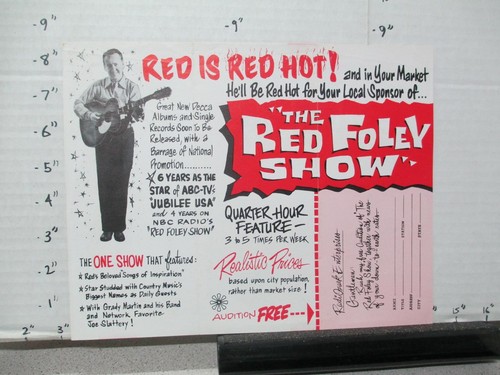 RED IS RED HOT! and in Your Market
He'll Be Red Hot for Your Local Sponsor of...
"THE
RED FOLEY
SHOW"
Great New Decca
Albums and Single
Records Soon To Be
Released, with a
Barrage of National
Promotion..........
6 YEARS AS THE
STAR of ABC-TV's
"JUBILEE USA"
and 4 YEARS ON
NBC RADIO'S
"RED FOLEY SHOW"
QUARTER-HOUR
FEATURE-
3 to 5 TIMES PER WEEK
Realistic Prices
based upon city population,
rather than market size!
AUDITION FREE
THE ONE SHOW THAT featured:
Red's Beloved "Songs of Inspiration"
Star Studded with Country Music's
Biggest Names as Daily Guests
With Grady Martin and his Band
and Network Favorite
Joe Slattery!
RadiOzark Enterprises
Gentlemen:
Rush me free Audition of "The
Red Foley Show" together with
NAME
TITLE
STATION
ADDRESS
CITY
STATE
-9"
-8"
-7"
-6"
-5"
-4"
-3"
-2"
-1"
2"
3"
-9"
-9"
15"
16"